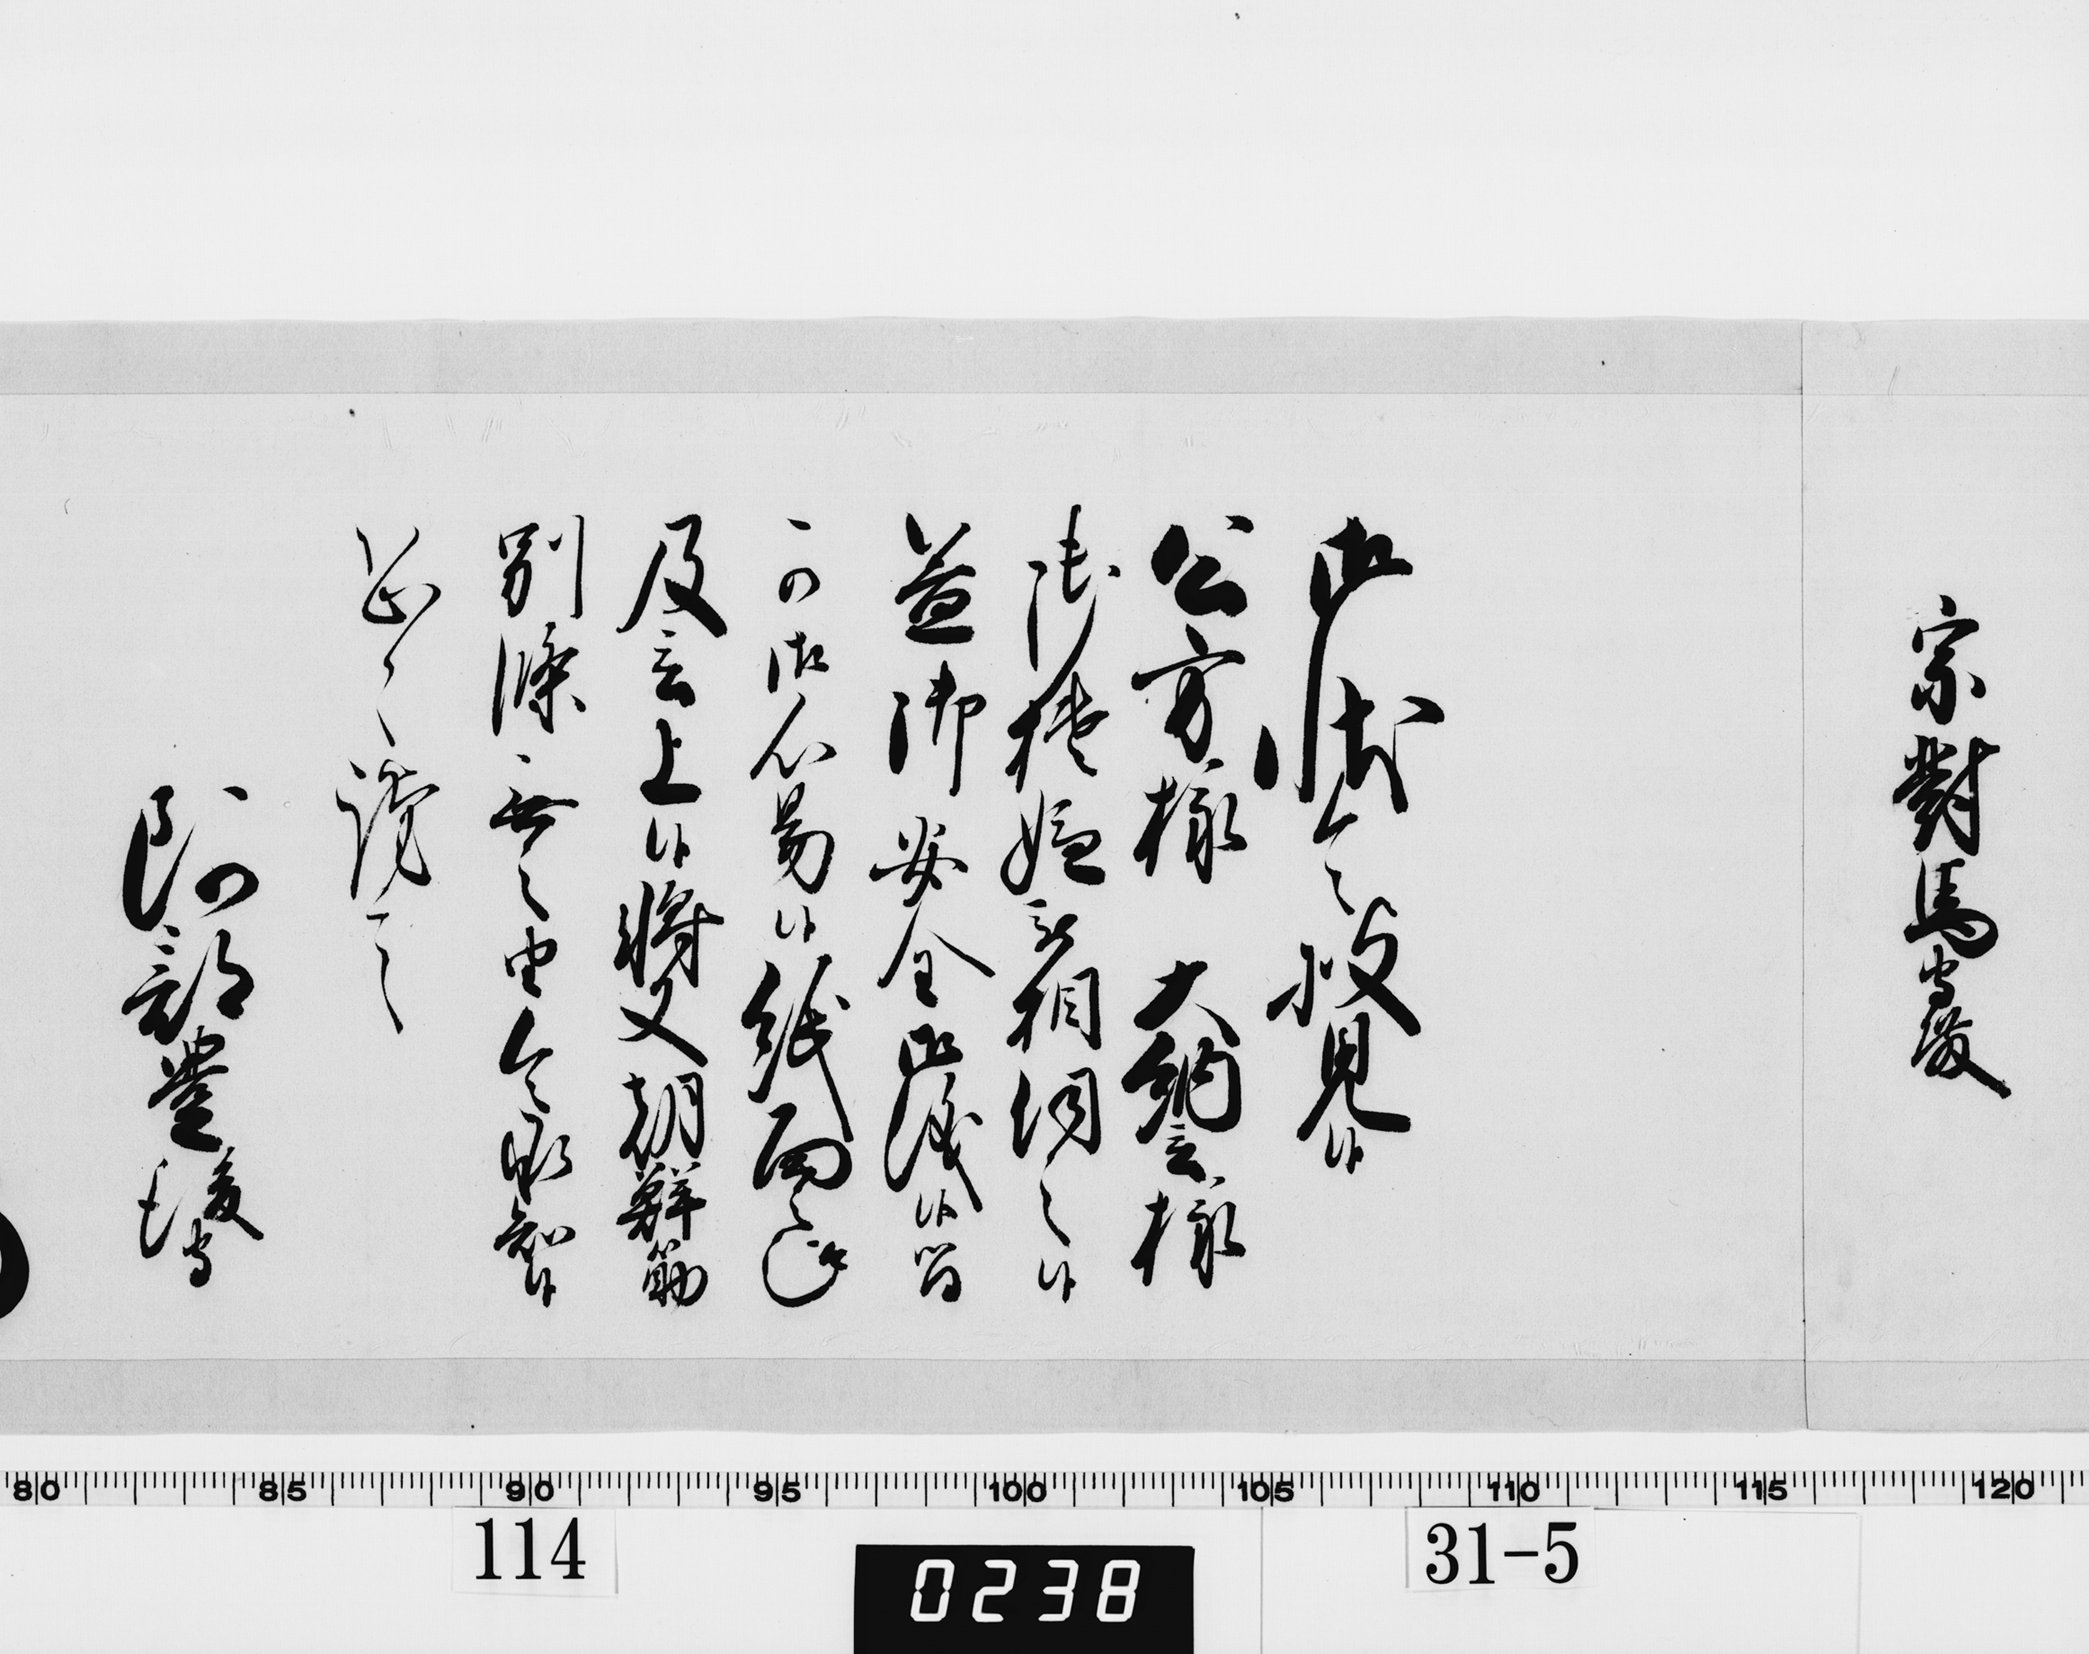 宗對馬守殿
御状令披見候
公方様 大納言様
御機嫌被相伺之候
益御安全御儀候間
可御心易候紙面之趣
及言上候將又朝鮮筋
別條無之由令承知候
恐々謹言
阿部豊後守
80 85 90 95 100 105 110 115 120
114
0238
31-5